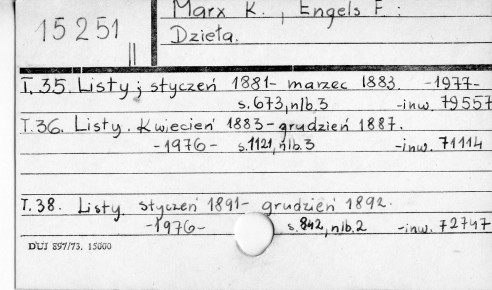 15251
Marx K., Engels F.:
Dzieła.
T. 35. Listy; styczeń 1881- marzec 1883. -1977-
s. 673, nlb. 3 -inw. 79557
T. 36. Listy. Kwiecień 1883-grudzień 1887.
-1976- s. 1121, nlb. 3 -inw. 71114
T. 38. Listy. styczeń 1891- grudzień 1892.
-1976- s. 842, nlb. 2 -inw. 72747
DUJ 897/73. 15000